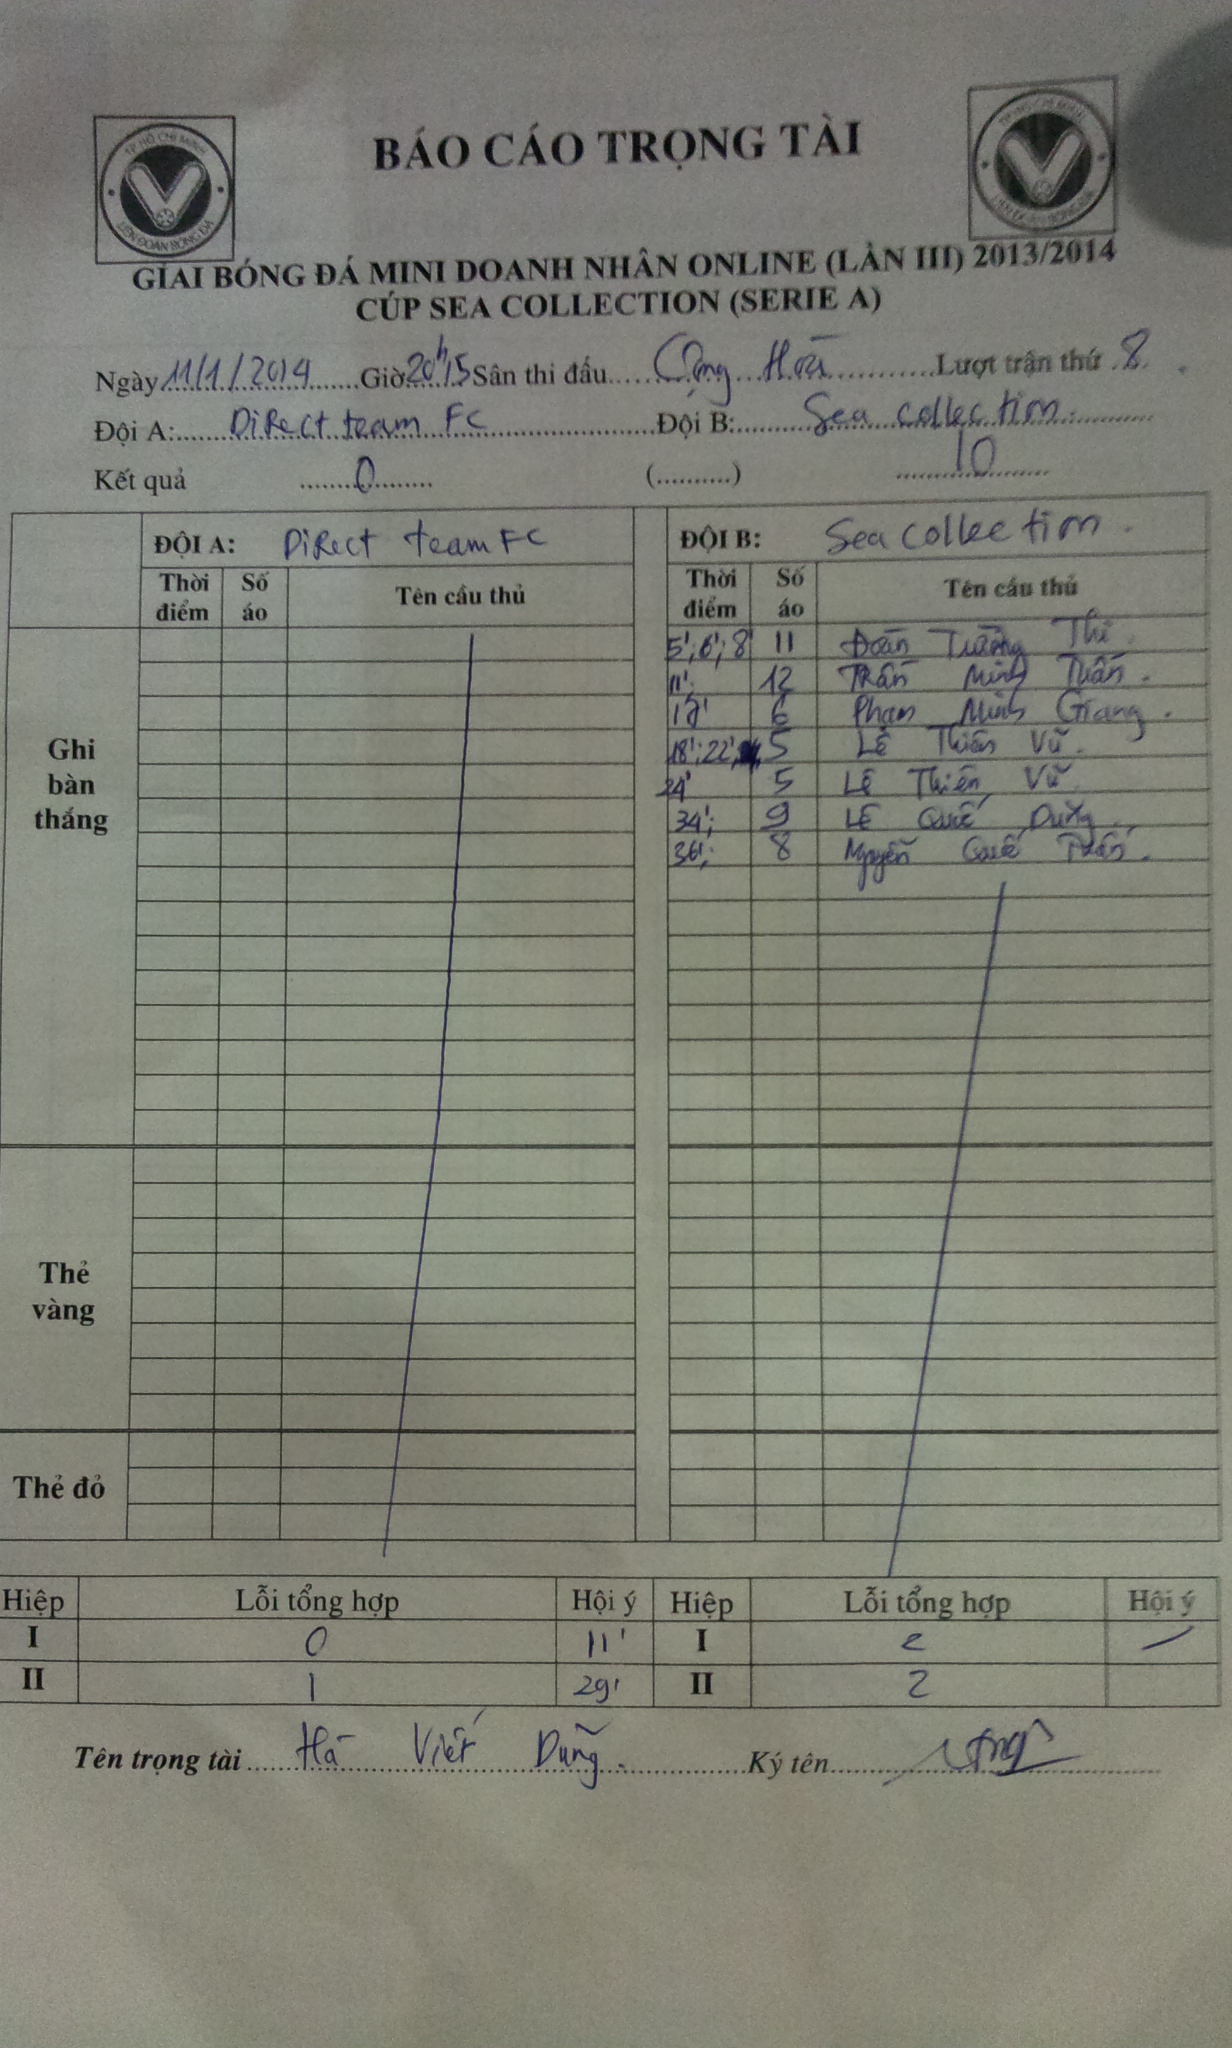 TP HỒ CHÍ MINH
LIÊN ĐOÀN BÓNG ĐÁ
BÁO CÁO TRỌNG TÀI
GIẢI BÓNG ĐÁ MINI DOANH NHÂN ONLINE (LẦN III) 2013/2014
CÚP SEA COLLECTION (SERIE A)
Ngày 11/1/2014 Giờ 20h15 Sân thi đấu Cộng Hoà Lượt trận thứ 8
Đội A: DiRect team FC Đội B: Sea collection
Kết quả 0 (..........) 10
ĐỘI A: DiRect team FC ĐỘI B: Sea collection.
Thời điểm Số áo Tên cầu thủ Thời điểm Số áo Tên cầu thủ
Ghi bàn thắng
5'; 6'; 8' 11 Đoàn Trường Thi
11'; 12 Trần Minh Tuấn.
6 Phạm Minh Giang.
18'; 22', 5 Lê Thiên Vũ.
24' 5 Lê Thiên Vũ
34'; 9 Lê Quốc Dũng
36'; 8 Nguyễn Quốc Tuấn.
Thẻ vàng
Thẻ đỏ
Hiệp Lỗi tổng hợp Hội ý Hiệp Lỗi tổng hợp Hội ý
I 0 11' I 2
II 1 29' II 2
Tên trọng tài Hà Viết Dũng. Ký tên